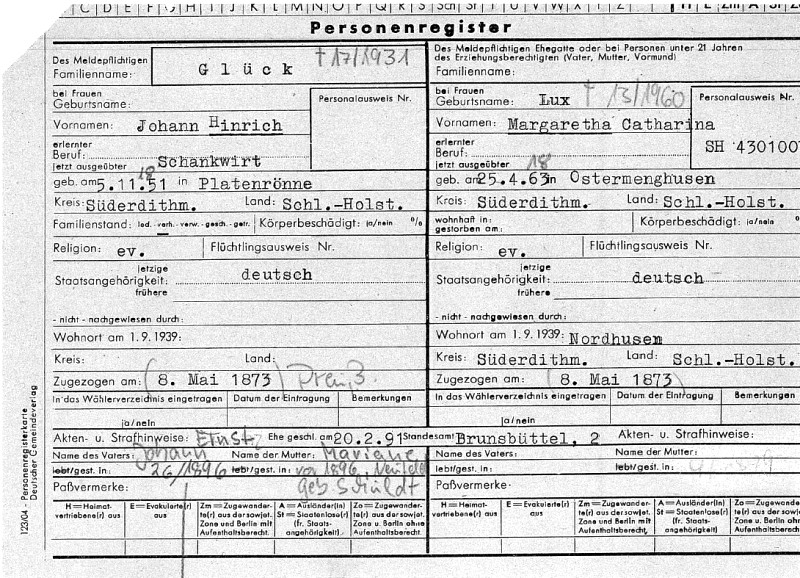 C D E F G H I J K L M N O P Q R S Sch St T U V W X Y Z
Personenregister
Des Meldepflichtigen
Familienname: Glück † 17/1931
bei Frauen
Geburtsname:
Personalausweis Nr.
Vornamen: Johann Hinrich
erlernter
Beruf:
jetzt ausgeübter Schankwirt
geb. am 5.11.51 in Platenrönne
18
Kreis: Süderdithm. Land: Schl.-Holst.
Familienstand: led.-verh.-verw.-gesch.-getr. Körperbeschädigt: ja/nein %
Religion: ev. Flüchtlingsausweis Nr.
jetzige
Staatsangehörigkeit: deutsch
frühere
- nicht - nachgewiesen durch:
Wohnort am 1.9.1939:
Kreis: Land:
Zugezogen am: (8. Mai 1873)
In das Wählerverzeichnis eingetragen Datum der Eintragung Bemerkungen
ja/nein
Akten- u. Strafhinweise: Ernst Ehe geschl. am 20.2.91 Standesamt Brunsbüttel, 2
Name des Vaters: Johann Name der Mutter: Mariane
lebt/gest. in: 26/1896 lebt/gest. in: vor 1896,
Paßvermerke: geb. Schuldt
H = Heimat-
vertriebene(r) aus
E = Evakuierte(r)
aus
Zm = Zugewander-
te(r) aus der sowjet.
Zone und Berlin mit
Aufenthaltsberecht.
A = Ausländer(in)
St = Staatenlose(r)
(fr. Staats-
angehörigkeit)
Zo = Zugewander-
te(r) aus der sowjet.
Zone u. Berlin ohne
Aufenthaltsberecht
Des Meldepflichtigen Ehegatte oder bei Personen unter 21 Jahren
des Erziehungsberechtigten (Vater, Mutter, Vormund)
Familienname:
bei Frauen
Geburtsname: Lux † 13/1960
Personalausweis Nr.
Vornamen: Margaretha Catharina
SH 430100
erlernter
Beruf:
jetzt ausgeübter
18
geb. am 25.4.63 in Ostermenghusen
Kreis: Süderdithm. Land: Schl.-Holst.
wohnhaft in:
gestorben am:
Körperbeschädigt: ja/nein %
Religion: ev. Flüchtlingsausweis Nr.
jetzige
Staatsangehörigkeit: deutsch
frühere
- nicht - nachgewiesen durch:
Wohnort am 1.9.1939: Nordhusen
Kreis: Süderdithm. Land: Schl.-Holst.
Zugezogen am: (8. Mai 1873)
In das Wählerverzeichnis eingetragen Datum der Eintragung Bemerkungen
ja/nein
Akten- u. Strafhinweise:
Name des Vaters: Name der Mutter:
lebt/gest. in: lebt/gest. in:
Paßvermerke:
H = Heimat-
vertriebene(r) aus
E = Evakuierte(r)
aus
Zm = Zugewander-
te(r) aus der sowjet.
Zone und Berlin mit
Aufenthaltsberecht.
A = Ausländer(in)
St = Staatenlose(r)
(fr. Staats-
angehörigkeit)
Zo = Zugewan
te(r) aus der so
Zone u. Berlin
Aufenthaltsber
123/04 - Personenregisterkarte
Deutscher Gemeindeverlag